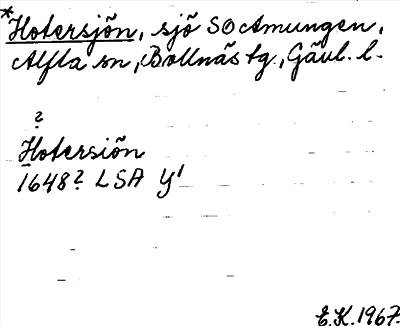 *Hotersjön, sjö SO Amungen,
Alfta sn, Bollnäs tg., Gävl. l.
?
Hotersiön
1648? LSA Y1
E.K. 1967.